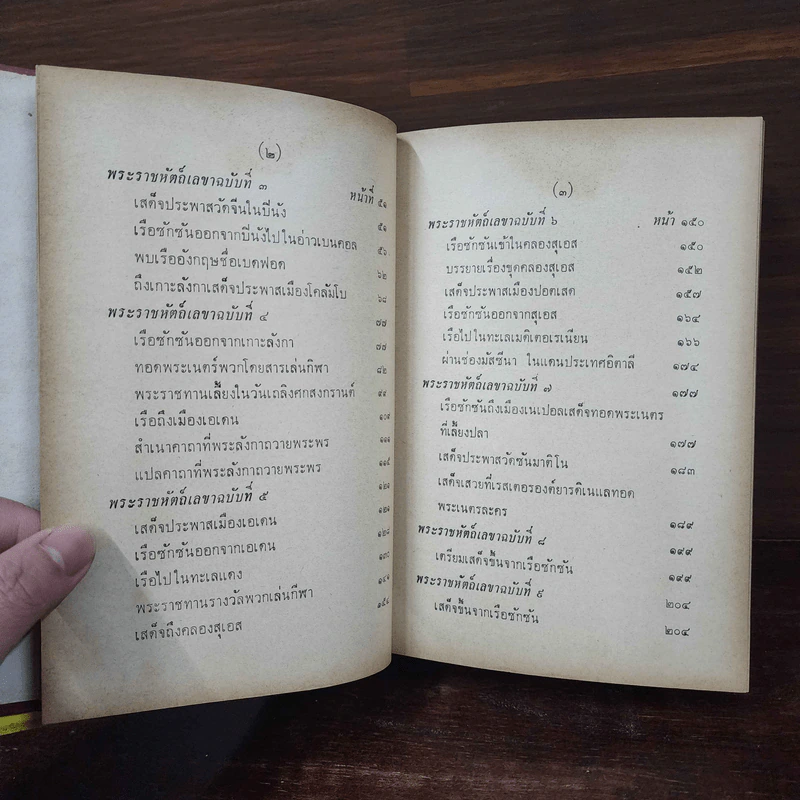 (๒)
พระราชหัตถ์เลขาฉบับที่ ๓ หน้าที่ ๕๑
เสด็จประพาสวัดจีนในบี่นัง ๕๑
เรือซักซันออกจากบี่นังไปในอ่าวเบนคอล ๕๖
พบเรืออังกฤษชื่อเบดฟอด ๖๒
ถึงเกาะลังกาเสด็จประพาสเมืองโคลัมโบ ๖๘
พระราชหัตถ์เลขาฉบับที่ ๔ ๗๗
เรือซักซันออกจากเกาะลังกา ๗๗
ทอดพระเนตร์พวกโดยสารเล่นกีฬา ๘๒
พระราชทานเลี้ยงในวันเถลิงศกสงกรานต์ ๙๙
เรือถึงเมืองเอเดน ๑๐๙
สำเนาคาถาที่พระลังกาถวายพระพร ๑๑๑
แปลคาถาที่พระลังกาถวายพระพร ๑๑๕
พระราชหัตถ์เลขาฉบับที่ ๕ ๑๒๑
เสด็จประพาสเมืองเอเดน ๑๒๑
เรือซักซันออกจากเอเดน ๑๒๘
เรือไปในทะเลแดง ๑๓๐
พระราชทานรางวัลพวกเล่นกีฬา
เสด็จถึงคลองสุเอส
(๓)
พระราชหัตถ์เลขาฉบับที่ ๖ หน้า ๑๕๐
เรือซักซันเข้าในคลองสุเอส ๑๕๐
บรรยายเรื่องขุดคลองสุเอส ๑๕๒
เสด็จประพาสเมืองปอตเสต ๑๕๗
เรือซักซันออกจากสุเอส ๑๖๔
เรือไปในทะเลเมดิเตอเรเนียน ๑๖๖
ผ่านช่องมัสซีนา ในแดนประเทศอิตาลี ๑๗๔
พระราชหัตถ์เลขาฉบับที่ ๗ ๑๗๗
เรือซักซันถึงเมืองเนเปอลเสด็จทอดพระเนตร
ที่เลี้ยงปลา ๑๗๗
เสด็จประพาสวัดซันมาติโน ๑๘๓
เสด็จเสวยที่เรสเตอรองต์ยารดิเนแลทอด
พระเนตรละคร ๑๘๙
พระราชหัตถ์เลขาฉบับที่ ๘ ๑๙๙
เตรียมเสด็จขึ้นจากเรือซักซัน ๑๙๙
พระราชหัตถ์เลขาฉบับที่ ๙ ๒๐๔
เสด็จขึ้นจากเรือซักซัน ๒๐๔